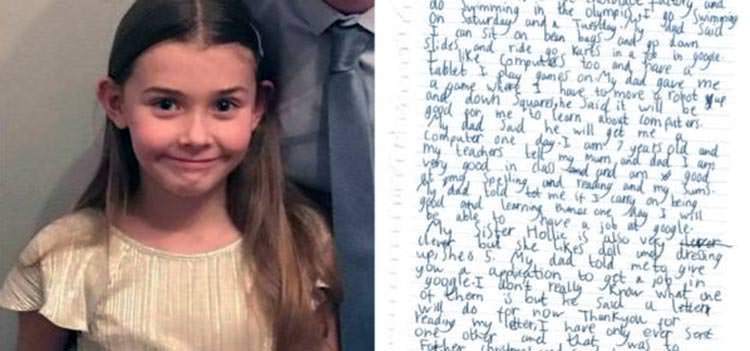 chocolate factory and
do swimming in the olympics, I go swimming
on Saturday and a Tuesday. My dad said
I can sit on bean bags and go down
slides and ride go karts in a job in google.
I like computers too and have a
tablet I play games on. My dad gave me
a game where I have to move a robot up
and down squares, he said it will be
good for me to learn about computers.
My dad said he will get me a
computer one day. I am 7 years old and
my teachers tell my mum and dad I am
very good in class and am good
at my spelling and reading and my sums.
My dad told me if I carry on being
good and learning one day I will
be able to have a job at google.
My sister Hollie is also very
clever but she likes doll and dressing
up, shes 5. My dad told me to give
you a application to get a job in
google. I don't really know what one
of them is but he said a letter
will do for now. Thankyou for
reading my letter, I have only ever sent
one other and that was to
Father christmas